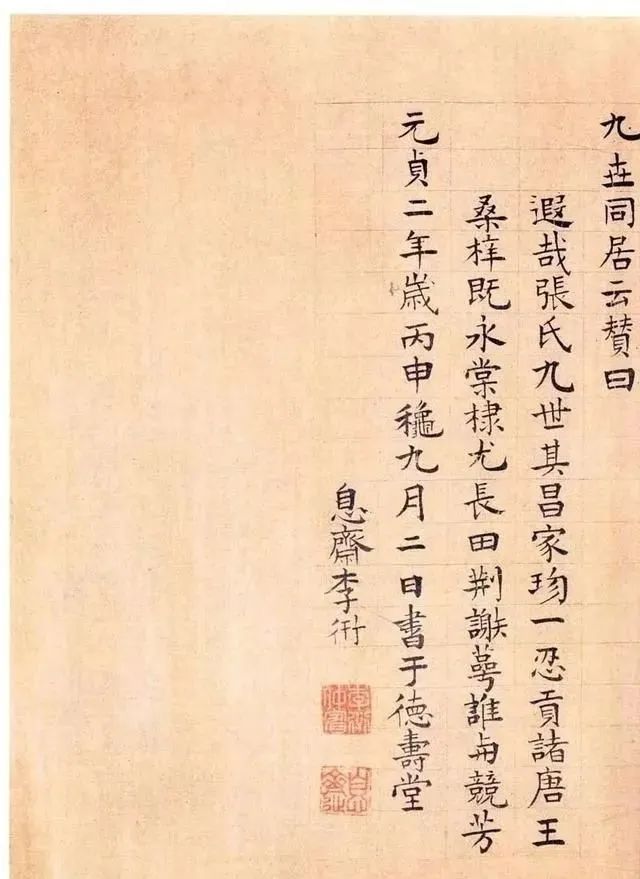 九卋同居云賛曰
遐哉張氏九世其昌家珎一忍貢諸唐王
桑梓既永棠棣尤長田荆謝萼誰与競芳
元貞二年歲丙申穐九月二日書于德壽堂
息齋李衎
李衎仲賓